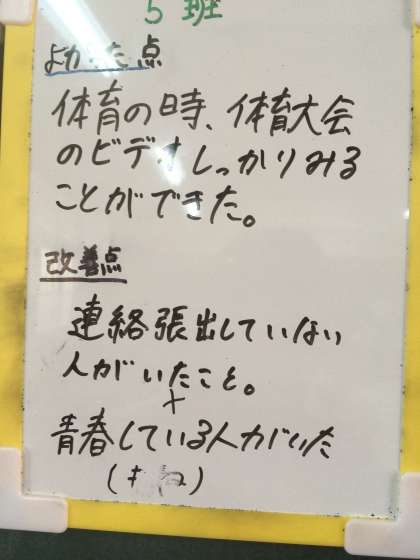 5班
よかった点
体育の時、体育大会
のビデオしっかりみる
ことができた。
改善点
連絡張出していない
人がいたこと。
+
青春している人がいた